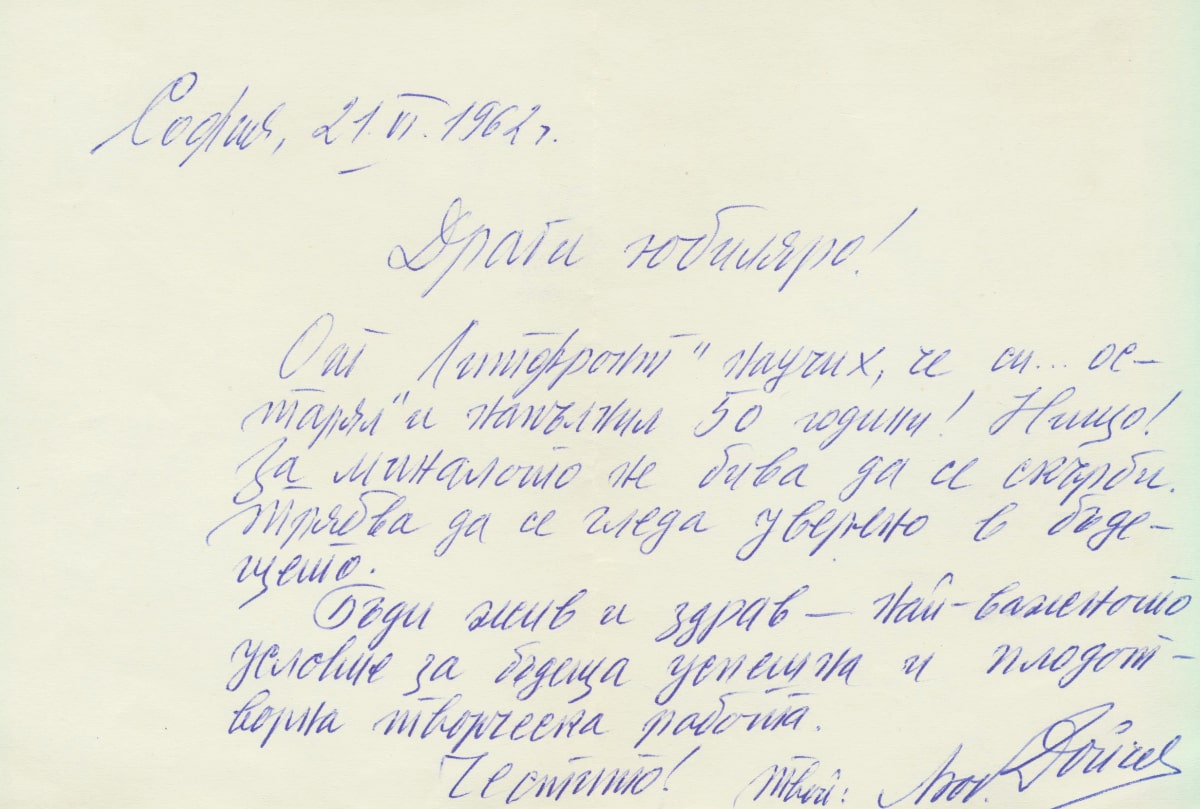 София, 21.VI.1962 г.
Драги юбиляро!
От Литфронт" научих, че си... ос-
тарял" и напълнил 50 години! Нищо!
За миналото не бива да се скърби.
Трябва да се гледа уверено в бъде-
щето.
Бъди жив и здрав — най-важното
условие за бъдеща успешна и плодот-
ворна творческа работа.
Честито! Твой: Люб. Дойчев